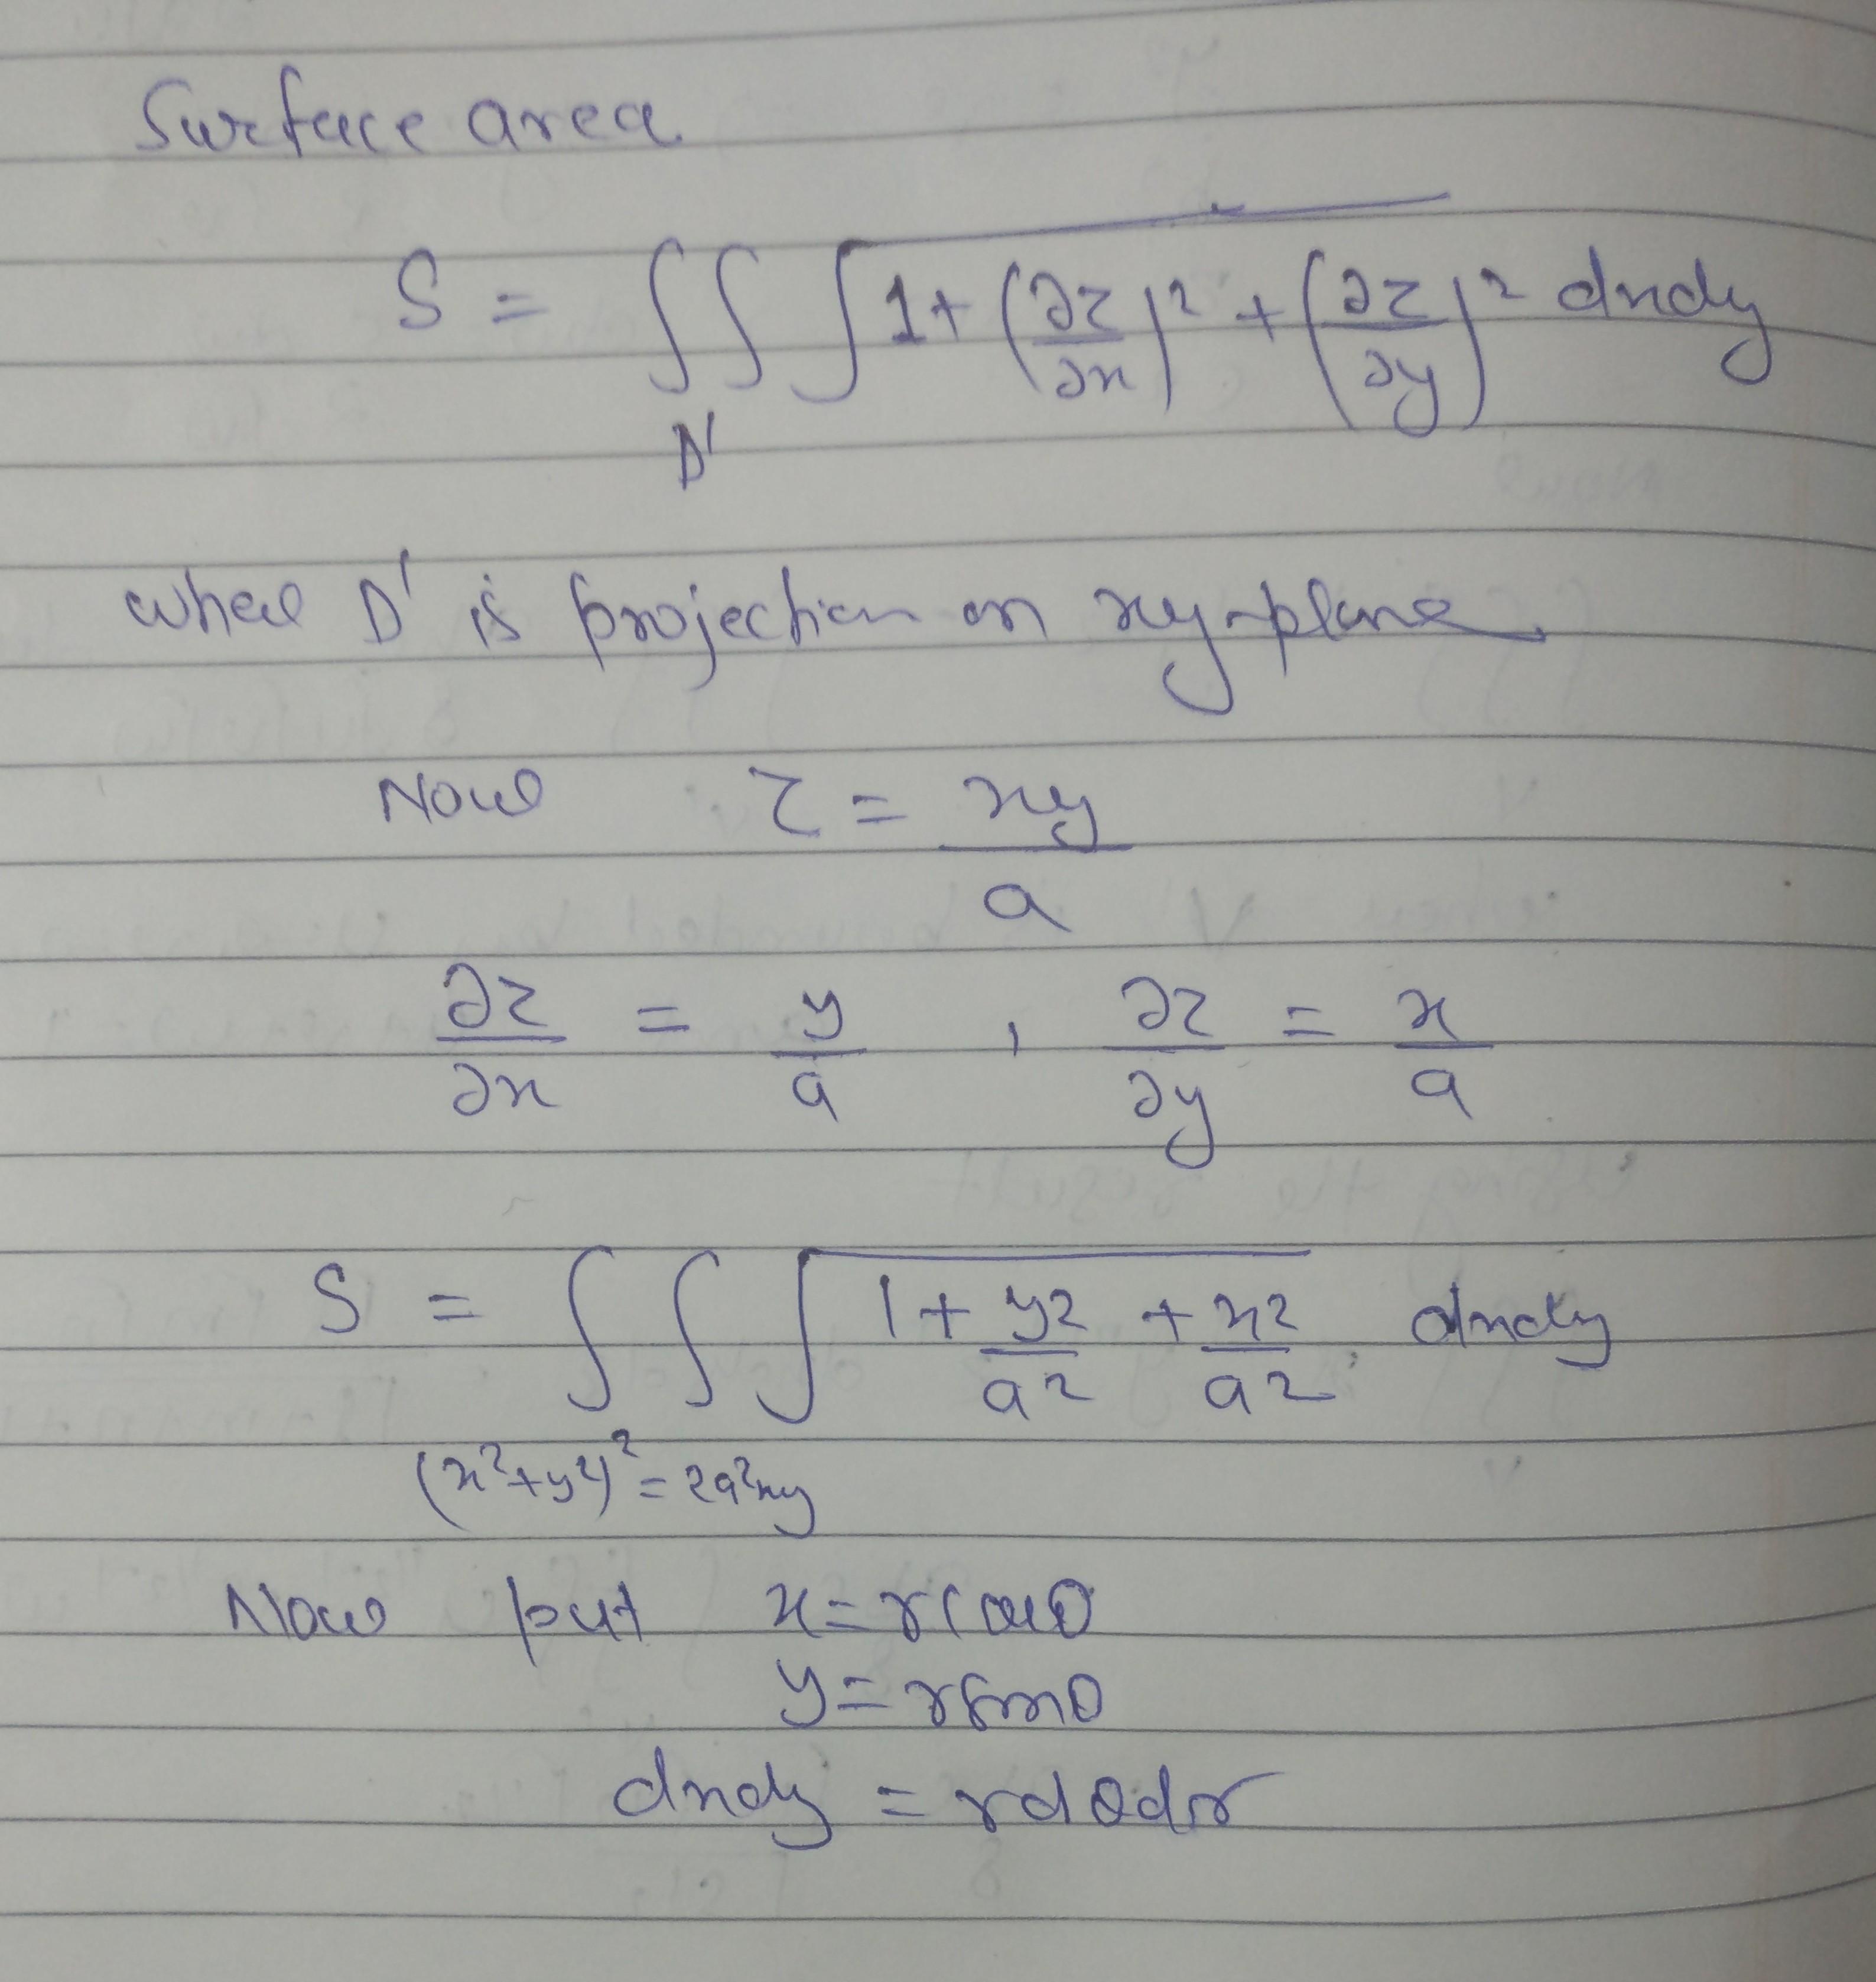 Surface area
S = ∫∫_D' √(1 + (∂z/∂x)² + (∂z/∂y)²) dxdy
where D' is projection on xy-plane
Now z = xy/a
∂z/∂x = y/a , ∂z/∂y = x/a
S = ∫∫ √(1 + y²/a² + x²/a²) dxdy
(x²+y²)² = 2a²xy
Now put x = rcosθ
y = rsinθ
dxdy = rdθdr